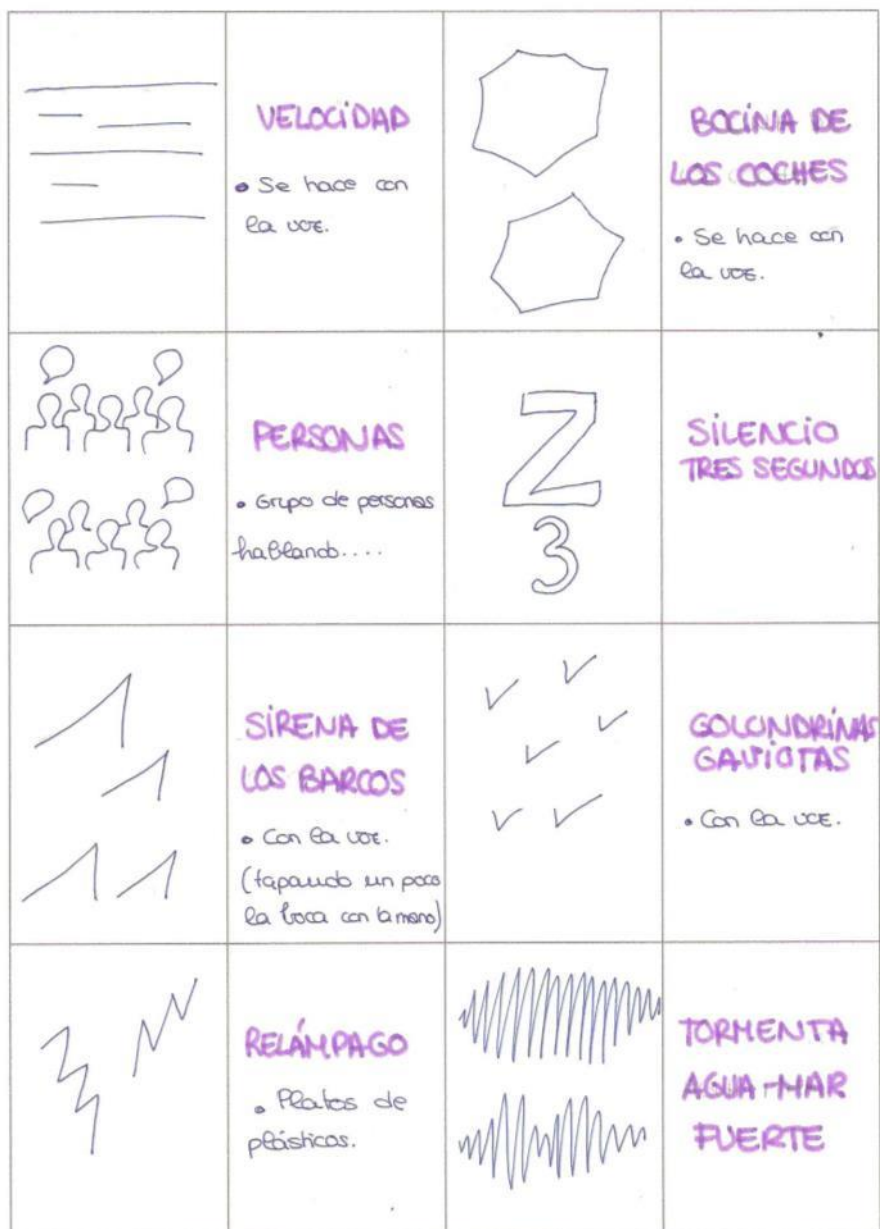 VELOCIDAD
• Se hace con
la voz.
BOCINA DE
LOS COCHES
• Se hace con
la voz.
PERSONAS
• Grupo de personas
hablando....
Z
3
SILENCIO
TRES SEGUNDOS
SIRENA DE
LOS BARCOS
• Con la voz.
(tapando un poco
la boca con la mano)
GOLONDRINAS
GAVIOTAS
• Con la voz.
RELÁMPAGO
• Platos de
plásticos.
TORMENTA
AGUA-MAR
FUERTE